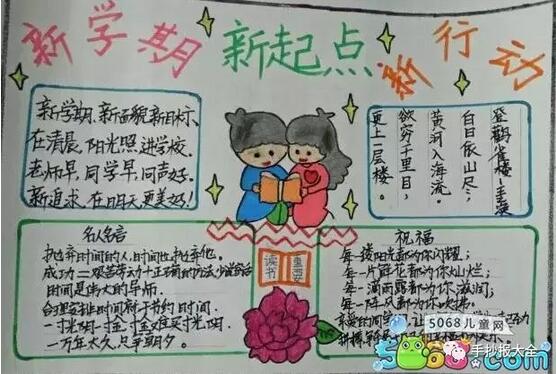 新学期 新起点 新行动
新学期、新面貌、新目标、
在清晨,阳光照,进学校.
老师早,同学早,同声好.
新追求,在明天,更美好!
登鹳雀楼-王之涣
白日依山尽,
黄河入海流。
欲穷千里目,
更上一层楼。
名人名言
抛弃时间的人,时间也抛弃他。
成功=艰苦劳动+正确的方法+少说空话
时间是伟大的导师.
合理安排时间就等于节约时间.
一寸光阴一寸金,寸金难买寸光阴.
一万年太久,只争朝夕。
读书
重要
祝福
每一缕阳光都为你闪耀;
每一片鲜花都为你灿烂;
每一滴雨露都为你滋润;
每一阵风都为你吹拂。
亲爱的同学们,让
5068儿童网
5068.com
手抄报大全